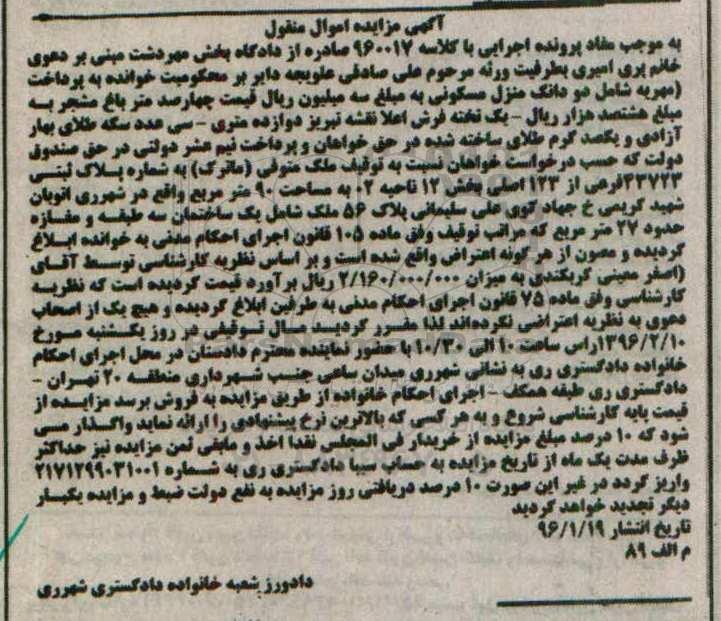 آگهی مزایده اموال منقول
به موجب مفاد پرونده اجرایی با کلاسه ۹۶۰۰۱۷ صادره از دادگاه بخش مهردشت مبنی بر دعوی
خانم پری امیری بطرفیت ورثه مرحوم علی صادقی علویجه دایر بر محکومیت خوانده به پرداخت
(مهریه شامل دو دانگ منزل مسکونی به مبلغ سه میلیون ریال قیمت چهارصد متر باغ مشجر به
مبلغ هشتصد هزار ریال - یک تخته فرش اعلا نقشه تبریز دوازده متری - سی عدد سکه طلای بهار
آزادی و یکصد گرم طلای ساخته شده در حق خواهان و پرداخت نیم عشر دولتی در حق صندوق
دولت که حسب درخواست خواهان نسبت به توقیف ملک متوفی (ماترک) به شماره پلاک ثبتی
۳۳۷۲۳فرعی از ۱۲۳ اصلی بخش ۱۲ ناحیه ۰۲ به مساحت ۹۰ متر مربع واقع در شهرری اتوبان
شهید کریمی خ جهاد کوی علی سلیمانی پلاک ۵۶ ملک شامل یک ساختمان سه طبقه و مغازه
حدود ۲۷ متر مربع که مراتب توقیف وفق ماده ۱۰۵ قانون اجرای احکام مدنی به خوانده ابلاغ
گردیده و مصون از هر گونه اعتراض واقع شده است و بر اساس نظریه کارشناسی توسط آقای
(اصغر معینی گریکندی به میزان ۲/۱۶۰/۰۰۰/۰۰۰ ریال برآورد قیمت گردیده است که نظریه
کارشناسی وفق ماده ۷۵ قانون اجرای احکام مدنی به طرفین ابلاغ گردیده و هیچ یک از اصحاب
دعوی به نظریه اعتراضی نکرده‌اند لذا مقرر گردید مال توقیفی در روز یکشنبه مورخ
۱۳۹۶/۲/۱۰راس ساعت ۱۰ الی ۱۰/۳۰ با حضور نماینده محترم دادستان در محل اجرای احکام
خانواده دادگستری ری به نشانی شهرری میدان ساعی جنب شهرداری منطقه ۲۰ تهران -
دادگستری ری طبقه همکف - اجرای احکام خانواده از طریق مزایده به فروش برسد مزایده از
قیمت پایه کارشناسی شروع و به هر کسی که بالاترین نرخ پیشنهادی را ارائه نماید واگذار می
شود که ۱۰ درصد مبلغ مزایده از خریدار فی المجلس نقدا اخذ و مابقی ثمن مزایده نیز حداکثر
ظرف مدت یک ماه از تاریخ مزایده به حساب سیبا دادگستری ری به شماره ۲۱۷۱۲۹۹۰۳۱۰۰۱
واریز گردد در غیر این صورت ۱۰ درصد دریافتی روز مزایده به نفع دولت ضبط و مزایده یکبار
دیگر تجدید خواهد گردید
تاریخ انتشار ۹۶/۱/۱۹
م الف ۸۹
دادورز شعبه خانواده دادگستری شهرری